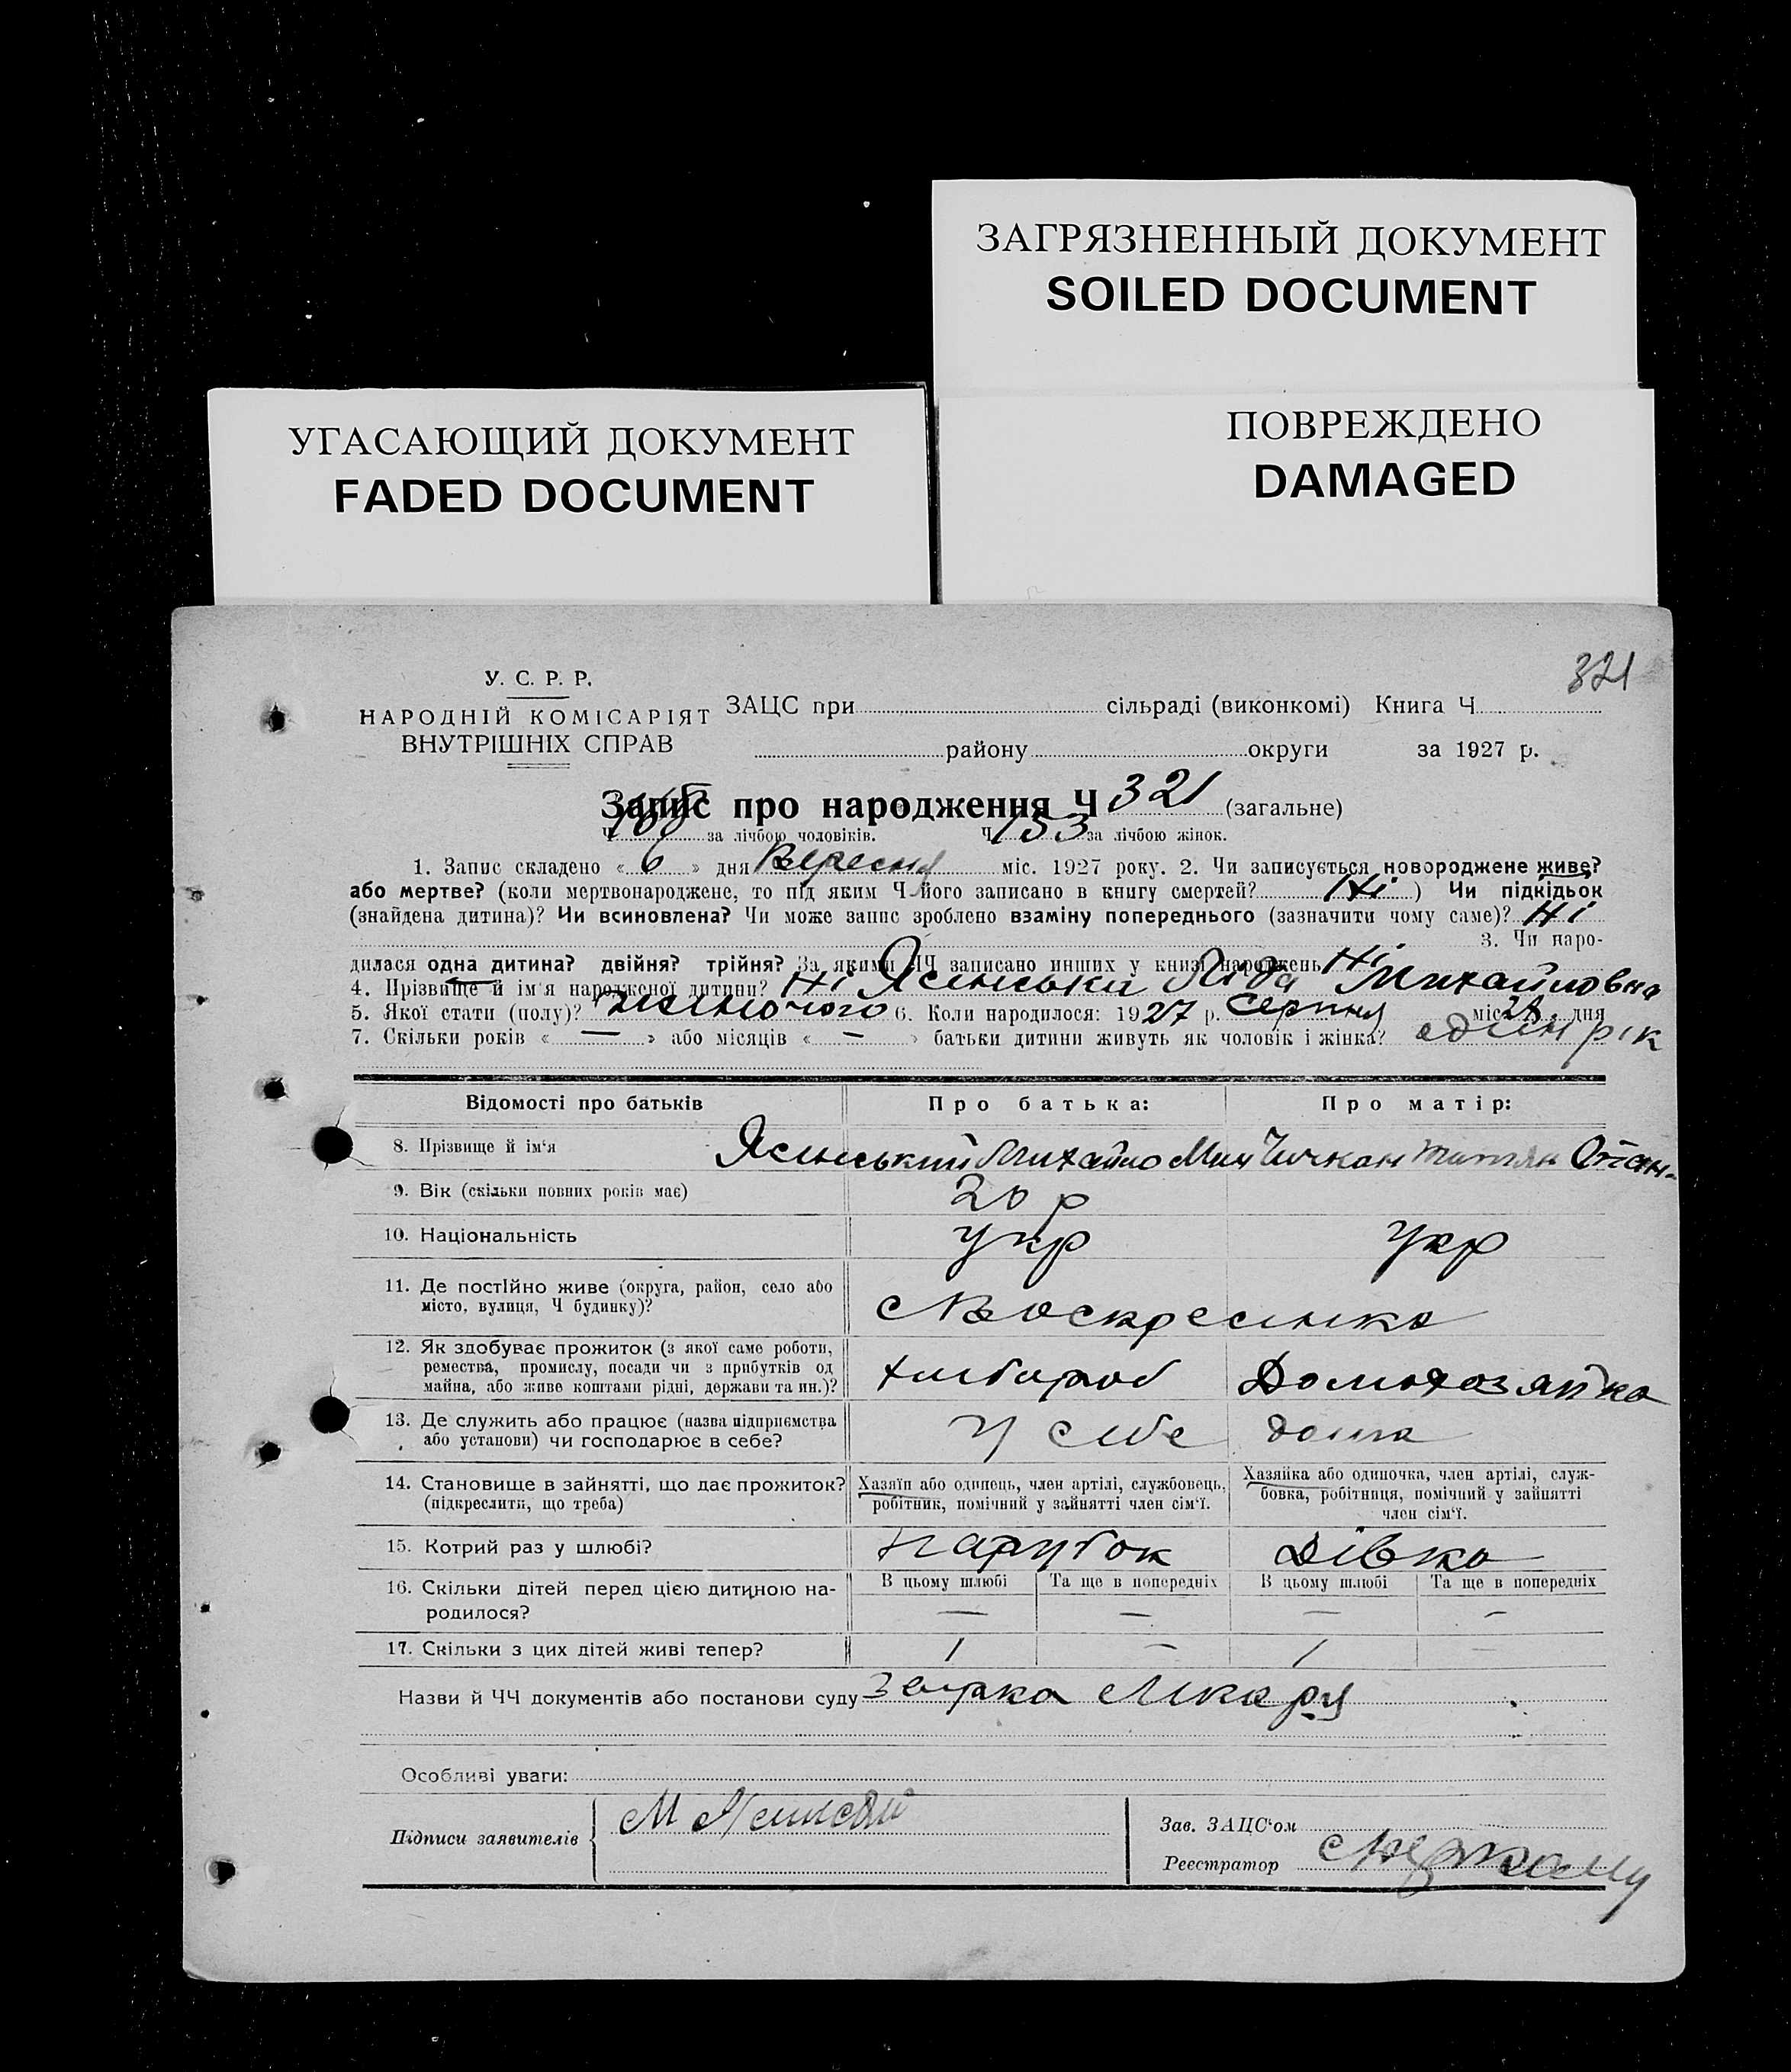 ЗАГРЯЗНЕННЫЙ ДОКУМЕНТ
SOILED DOCUMENT
УГАСАЮЩИЙ ДОКУМЕНТ
FADED DOCUMENT
ПОВРЕЖДЕНО
DAMAGED
321
У. С. Р. Р.
НАРОДНІЙ КОМІСАРІЯТ
ВНУТРІШНІХ СПРАВ
ЗАЦС при сільраді (виконкомі) Книга Ч
району округи за 1927 р.
Запис про народження Ч 321 (загальне)
Ч 168 за лічбою чоловіків. Ч 153 за лічбою жінок.
1. Запис складено « 6 » дня Вересня міс. 1927 року. 2. Чи записується новороджене живе?
або мертве? (коли мертвонароджене, то під яким Ч його записано в книгу смертей? Ні ) Чи підкідьок
(знайдена дитина)? Чи всиновлена? Чи може запис зроблено взаміну попереднього (зазначити чому саме)? Ні
3. Чи наро-
дилася одна дитина? двійня? трійня? За якими ЧЧ записано инших у книзі народжень Ні
4. Прізвище й ім'я народженої дитини? Ні Ясенський Ліда Михайловна
5. Якої стати (полу)? жиночого 6. Коли народилося: 1927 р. серпня міс. 28 дня
7. Скільки років « — » або місяців « — » батьки дитини живуть як чоловік і жінка? один рік
Відомості про батьків Про батька: Про матір:
8. Прізвище й ім'я Ясенський Михайло Мих Чичкан Титян Степан-
9. Вік (скільки повних років має) 20 р
10. Національність укр укр
11. Де постійно живе (округа, район, село або
місто, вулиця, Ч будинку)?
с Воскресенка
12. Як здобуває прожиток (з якої саме роботи,
ремества, промислу, посади чи з прибутків од
майна, або живе коштами рідні, держави та ин.)?
хлибороб Домохозяйка
13. Де служить або працює (назва підприємства
або установи) чи господарює в себе?
У себе дома
14. Становище в зайнятті, що дає прожиток?
(підкреслити, що треба)
Хазяїн або одинець, член артілі, службовець,
робітник, помічний у зайнятті член сім'ї.
Хазяйка або одиночка, член артілі, служ-
бовка, робітниця, помічний у зайнятті
член сім'ї.
15. Котрий раз у шлюбі? парубок Дівка
16. Скільки дітей перед цією дитиною на-
родилося?
В цьому шлюбі Та ще в попередніх В цьому шлюбі Та ще в попередніх
— — — —
17. Скільки з цих дітей живі тепер? 1 — 1 —
Назви й ЧЧ документів або постанови суду
Особливі уваги:
Підписи заявителів
М Ясинский
Зав. ЗАЦС'ом
Реєстратор